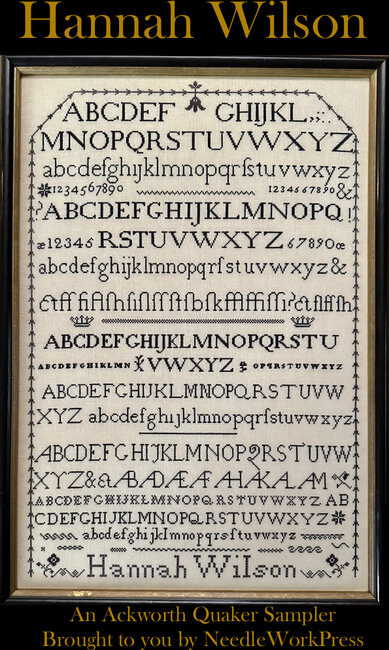 Hannah Wilson
ABCDEF GHIJKL,;:.
MNOPQRSTUVWXYZ
abcdefghijklmnopqrſstuvwxyz
1234567890 1234567890 &
? ABCDEFGHIJKLMNOPQ !
æ 12345 RSTUVWXYZ 67890 œ
abcdefghijklmnopqrſstuvwxyz &
ABCDEFGHIJKLMNOPQRSTU
ABCDEFGHIKLMN VWXYZ OPQRSTUVWXYZ
ABCDEFGHIJKLMNOPQRSTUVW
XYZ abcdefghijklmnopqrſstuvwxyz
ABCDEFGHIJKLMNOPQRSTUVW
XYZ&
ABCDEFGHIJKLMNOPQRSTUVWXYZ AB
CDEFGHIJKLMNOPQRSTUVWXYZ
abcdefghijklmnopqrstuvwxyz
Hannah Wilson
An Ackworth Quaker Sampler
Brought to you by NeedleWorkPress